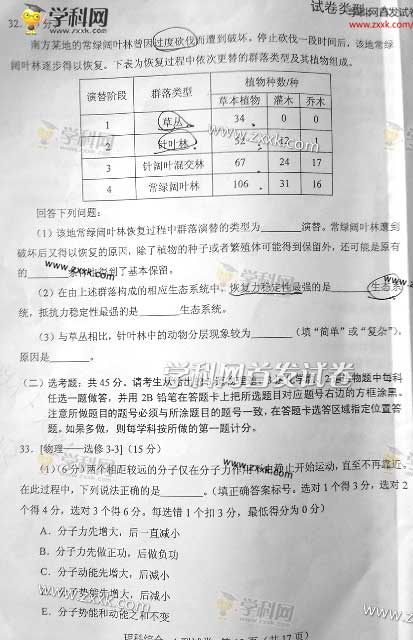 学科网
www.zxxk.com
试卷类型
学科网首发试卷
www.zxxk.com
32.
南方某地的常绿阔叶林曾因过度砍伐而遭到破坏。停止砍伐一段时间后,该地常绿
阔叶林逐步得以恢复。下表为恢复过程中依次更替的群落类型及其植物组成。
演替阶段 群落类型 植物种数/种
草本植物 灌木 乔木
1 草丛 34 0 0
2 针叶林 52 12 1
3 针阔叶混交林 67 24 17
4 常绿阔叶林 106 31 16
回答下列问题:
(1)该地常绿阔叶林恢复过程中群落演替的类型为______演替。常绿阔叶林遭到
破坏后又得以恢复的原因,除了植物的种子或者繁殖体可能得到保留外,还可能是原有
的______得到了基本保留。
(2)在由上述群落构成的相应生态系统中,恢复力稳定性最强的是______生态系
统,抵抗力稳定性最强的是______生态系统。
(3)与草丛相比,针叶林中的动物分层现象较为______(填“简单”或“复杂”),
原因是______。
学科网首发试卷
(二)选考题:共45分。请考生从 物题中每科
任选一题做答,并用2B铅笔在答题卡上把所选题目对应题号右边的方框涂黑。
注意所做题目的题号必须与所涂题目的题号一致,在答题卡选答区域指定位置答
题。如果多做,则每学科按所做的第一题计分。
33. [物理——选修3-3](15分)
(1)(6分)两个相距较远的分子仅在分子力作用下由静止开始运动,直至不再靠近。
在此过程中,下列说法正确的是______。(填正确答案标号。选对1个得3分,选对2
个得4分,选对3个得6分。每选错1个扣3分,最低得分为0分)
A. 分子力先增大,后一直减小
B. 分子力先做正功,后做负功
C. 分子动能先增大,后减小
D. 分子势能先增大,后减小
E. 分子势能和动能之和不变